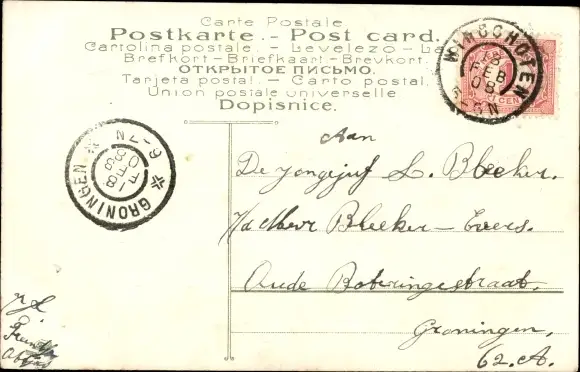 Carte Postale
Postkarte. - Post card.
Cartolina postale. - Levelezo - La
Brefkort - Briefkaart - Brevkort.
ОТКРЫТОЕ ПИСЬМО.
Tarjeta postal. - Carto postal.
Union postale universelle
Dopisnice.
WINSCHOTEN
FEB
08
CENT
GRONINGEN
6-7N
Aan
De jongejuf L. Bleeker.
Bleeker - Evers.
Oude Boteringestraat.
Groningen,
62. A.